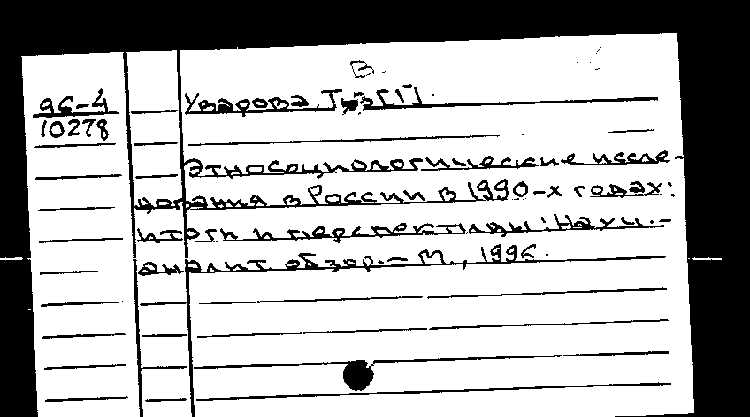 В.
96-4
10278
Уварова [1].
Этносоциологические иссле-
дования в России в 1990-х годах:
итоги и перспективы: Научн.-
аналит. обзор. – М., 1996.